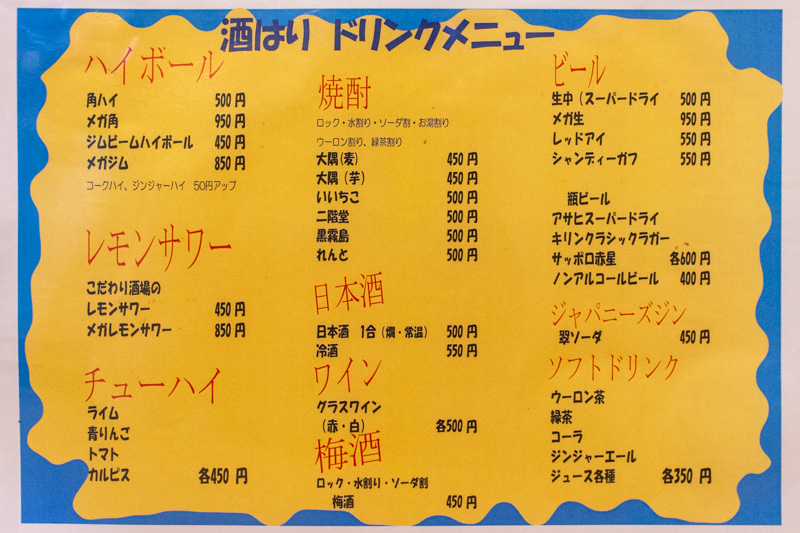 酒はり ドリンクメニュー
ハイボール
角ハイ 500円
メガ角 950円
ジムビームハイボール 450円
メガジム 850円
コークハイ、ジンジャーハイ 50円アップ
レモンサワー
こだわり酒場の
レモンサワー 450円
メガレモンサワー 850円
チューハイ
ライム
青りんご
トマト
カルピス 各450円
焼酎
ロック・水割り・ソーダ割・お湯割り
ウーロン割り、緑茶割り
大隅(麦) 450円
大隅（芋） 450円
いいちこ 500円
二階堂 500円
黒霧島 500円
れんと 500円
日本酒
日本酒 1合（燗・常温） 500円
冷酒 550円
ワイン
グラスワイン
（赤・白） 各500円
梅酒
ロック・水割り・ソーダ割
梅酒 450円
ビール
生中（スーパードライ 500円
メガ生 950円
レッドアイ 550円
シャンディーガフ 550円
瓶ビール
アサヒスーパードライ
キリンクラシックラガー
サッポロ赤星 各600円
ノンアルコールビール 400円
ジャパニーズジン
翠ソーダ 450円
ソフトドリンク
ウーロン茶
緑茶
コーラ
ジンジャーエール
ジュース各種 各350円